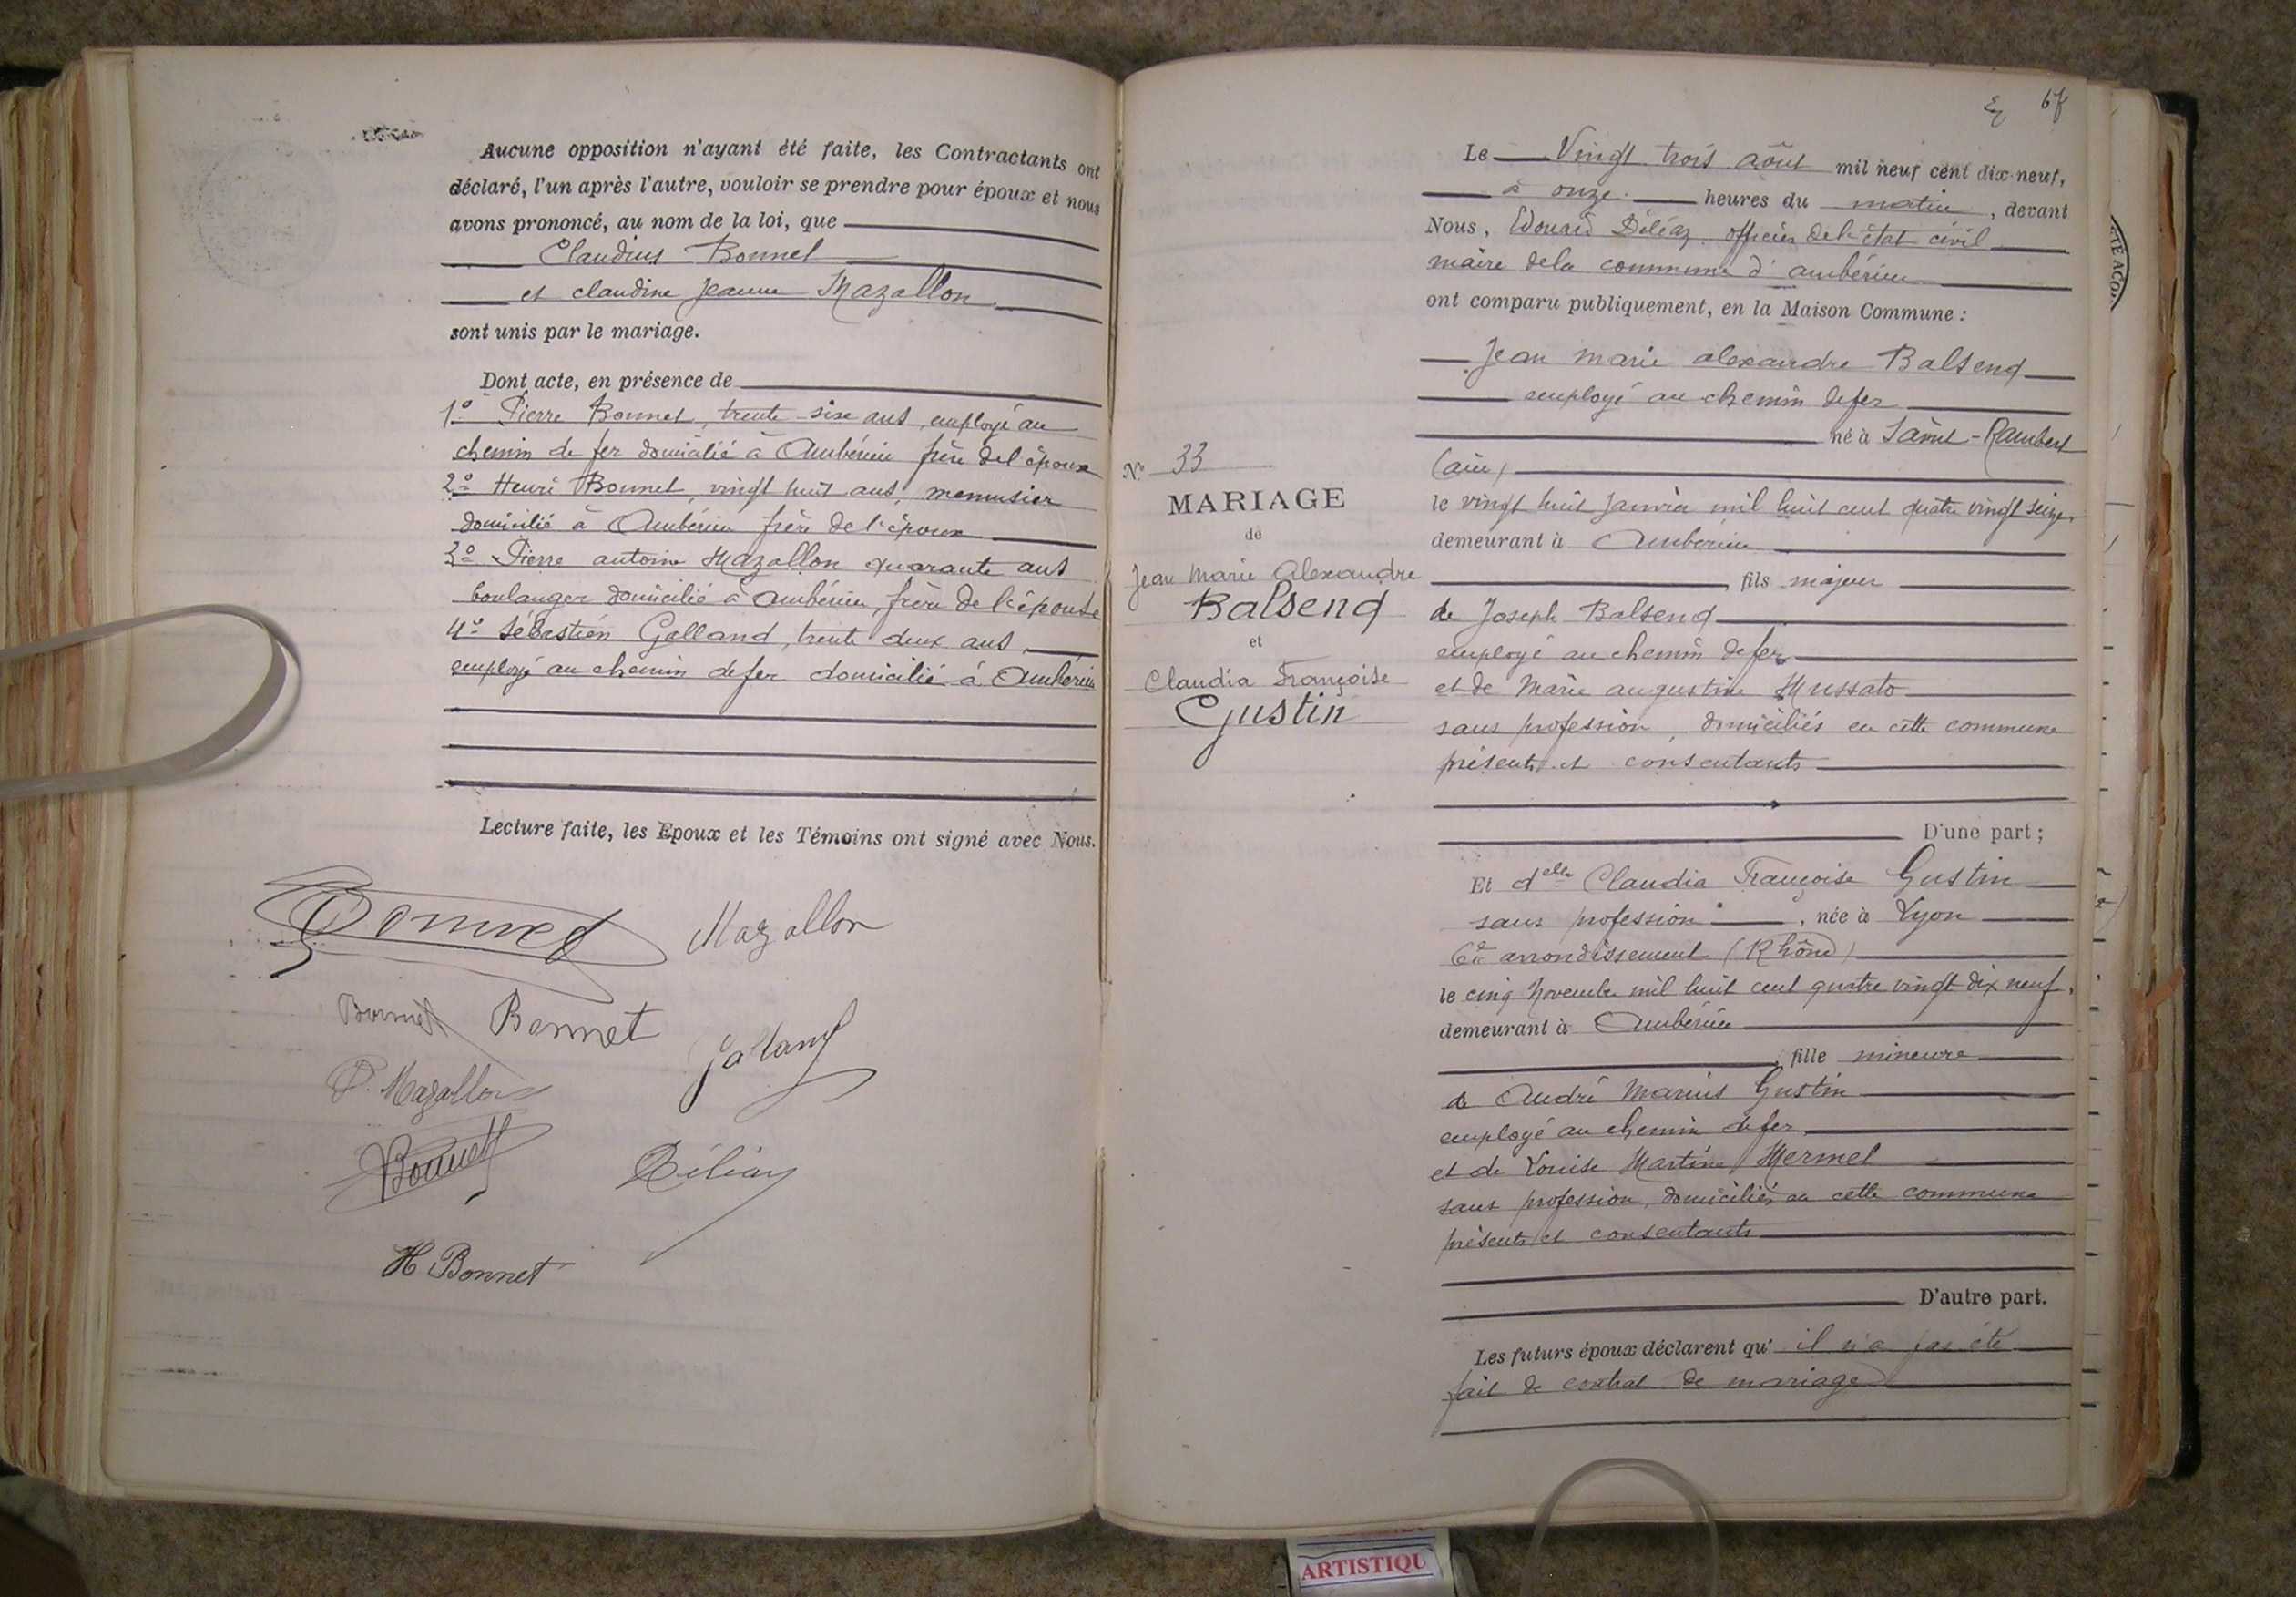 Aucune opposition n'ayant été faite, les Contractants ont
déclaré, l'un après l'autre, vouloir se prendre pour époux et nous
avons prononcé, au nom de la loi, que
Claudius Bonnet
et claudine Jeanne Mazallon
sont unis par le mariage.
Dont acte, en présence de
1º Pierre Bonnet, trente-six ans, employé au
chemin de fer domicilié à Ambérieu frère de l'époux
2º Henri Bonnet, vingt huit ans, menuisier
domicilié à Ambérieu frère de l'époux
3º Pierre antoine Mazallon quarante ans
boulanger domicilié à Ambérieu, frère de l'épouse
4º Sébastien Galland, trente deux ans,
employé au chemin de fer domicilié à Ambérieu
Lecture faite, les Epoux et les Témoins ont signé avec Nous.
Bonnet
Mazallon
Bonnet
Bonnet
Galland
P. Mazallon
Bonnet
Déléaz
H Bonnet
67
Le Vingt trois août mil neuf cent dix-neuf,
à onze heures du matin, devant
Nous, Edouard Déléaz officier de l'état civil
maire de la commune d'ambérieu
ont comparu publiquement, en la Maison Commune :
Jean marie alexandre Balsenq
employé au chemin de fer
né à Saint-Rambert
(ain)
le vingt huit Janvier mil huit cent quatre vingt seize,
demeurant à Ambérieu
fils majeur
de Joseph Balsenq
employé au chemin de fer
et de Marie augustine Mussato
sans profession, domiciliés en cette commune
présents et consentants
D'une part ;
Et delle Claudia Françoise Gustin
sans profession, née à Lyon
6e arrondissement (Rhône)
le cinq Novembre mil huit cent quatre vingt dix neuf,
demeurant à Ambérieu
fille mineure
de André Marius Gustin
employé au chemin de fer
et de Louise Martine Mermet
sans profession, domiciliés en cette commune
présents et consentants
D'autre part.
Les futurs époux déclarent qu'il n'a pas été
fait de contrat de mariage
Nº 33
MARIAGE
de
Jean Marie Alexandre
Balsenq
et
Claudia Françoise
Gustin
ARTISTIQU